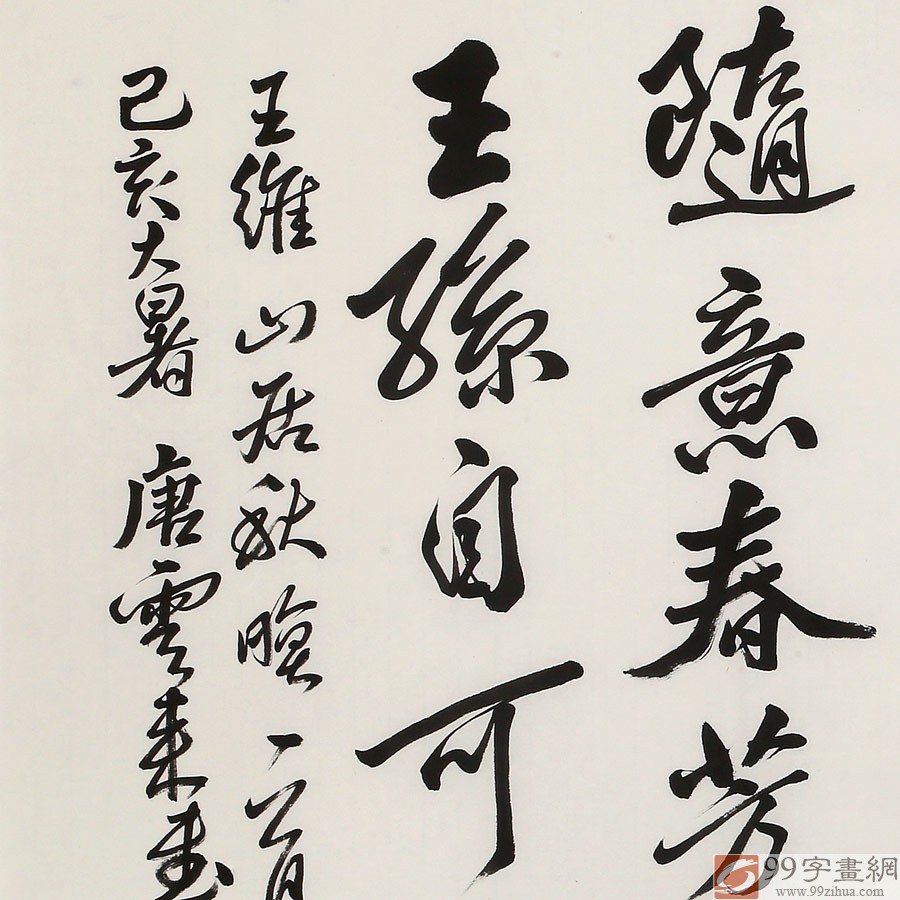 隨意春芳
王孫自可
王維山居秋暝一首
己亥大暑唐雲来書
99字畫網
www.99zihua.com